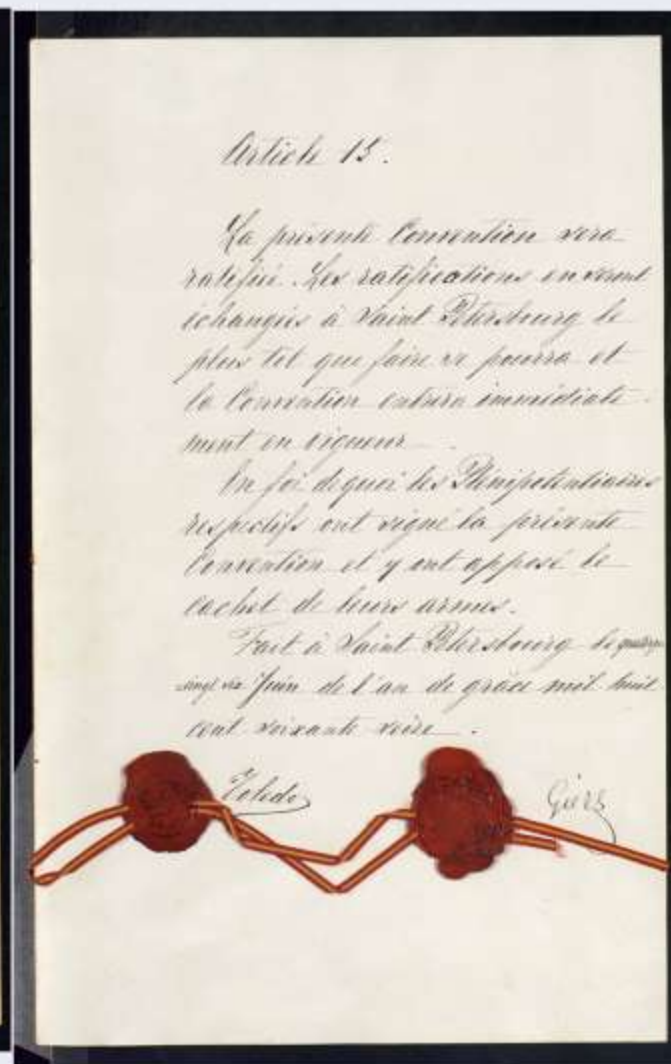 Article 15.
La présente Convention sera
ratifiée. Les ratifications en seront
échangées à Saint Pétersbourg le
plus tôt que faire se pourra et
la Convention entrera immédiate-
ment en vigueur.
En foi de quoi les Plénipotentiaires
respectifs ont signé la présente
Convention et y ont apposé le
cachet de leurs armes.
Fait à Saint Pétersbourg le
Juin de l'an de grâce mil huit
cent soixante seize.
Toledo
Giers